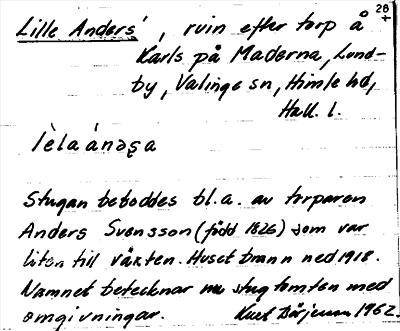 28
Lille Anders', ruin efter torp å
Karls på Maderna, Lund-
by, Valinge sn, Himle hd,
Hall. l.
lèlaánəʂa
Stugan beboddes bl.a. av torparen
Anders Svensson (född 1826) som var
liten till växten. Huset brann ned 1918.
Namnet betecknar nu stugtomten med
omgivningar. Kurt Börjesson 1962.